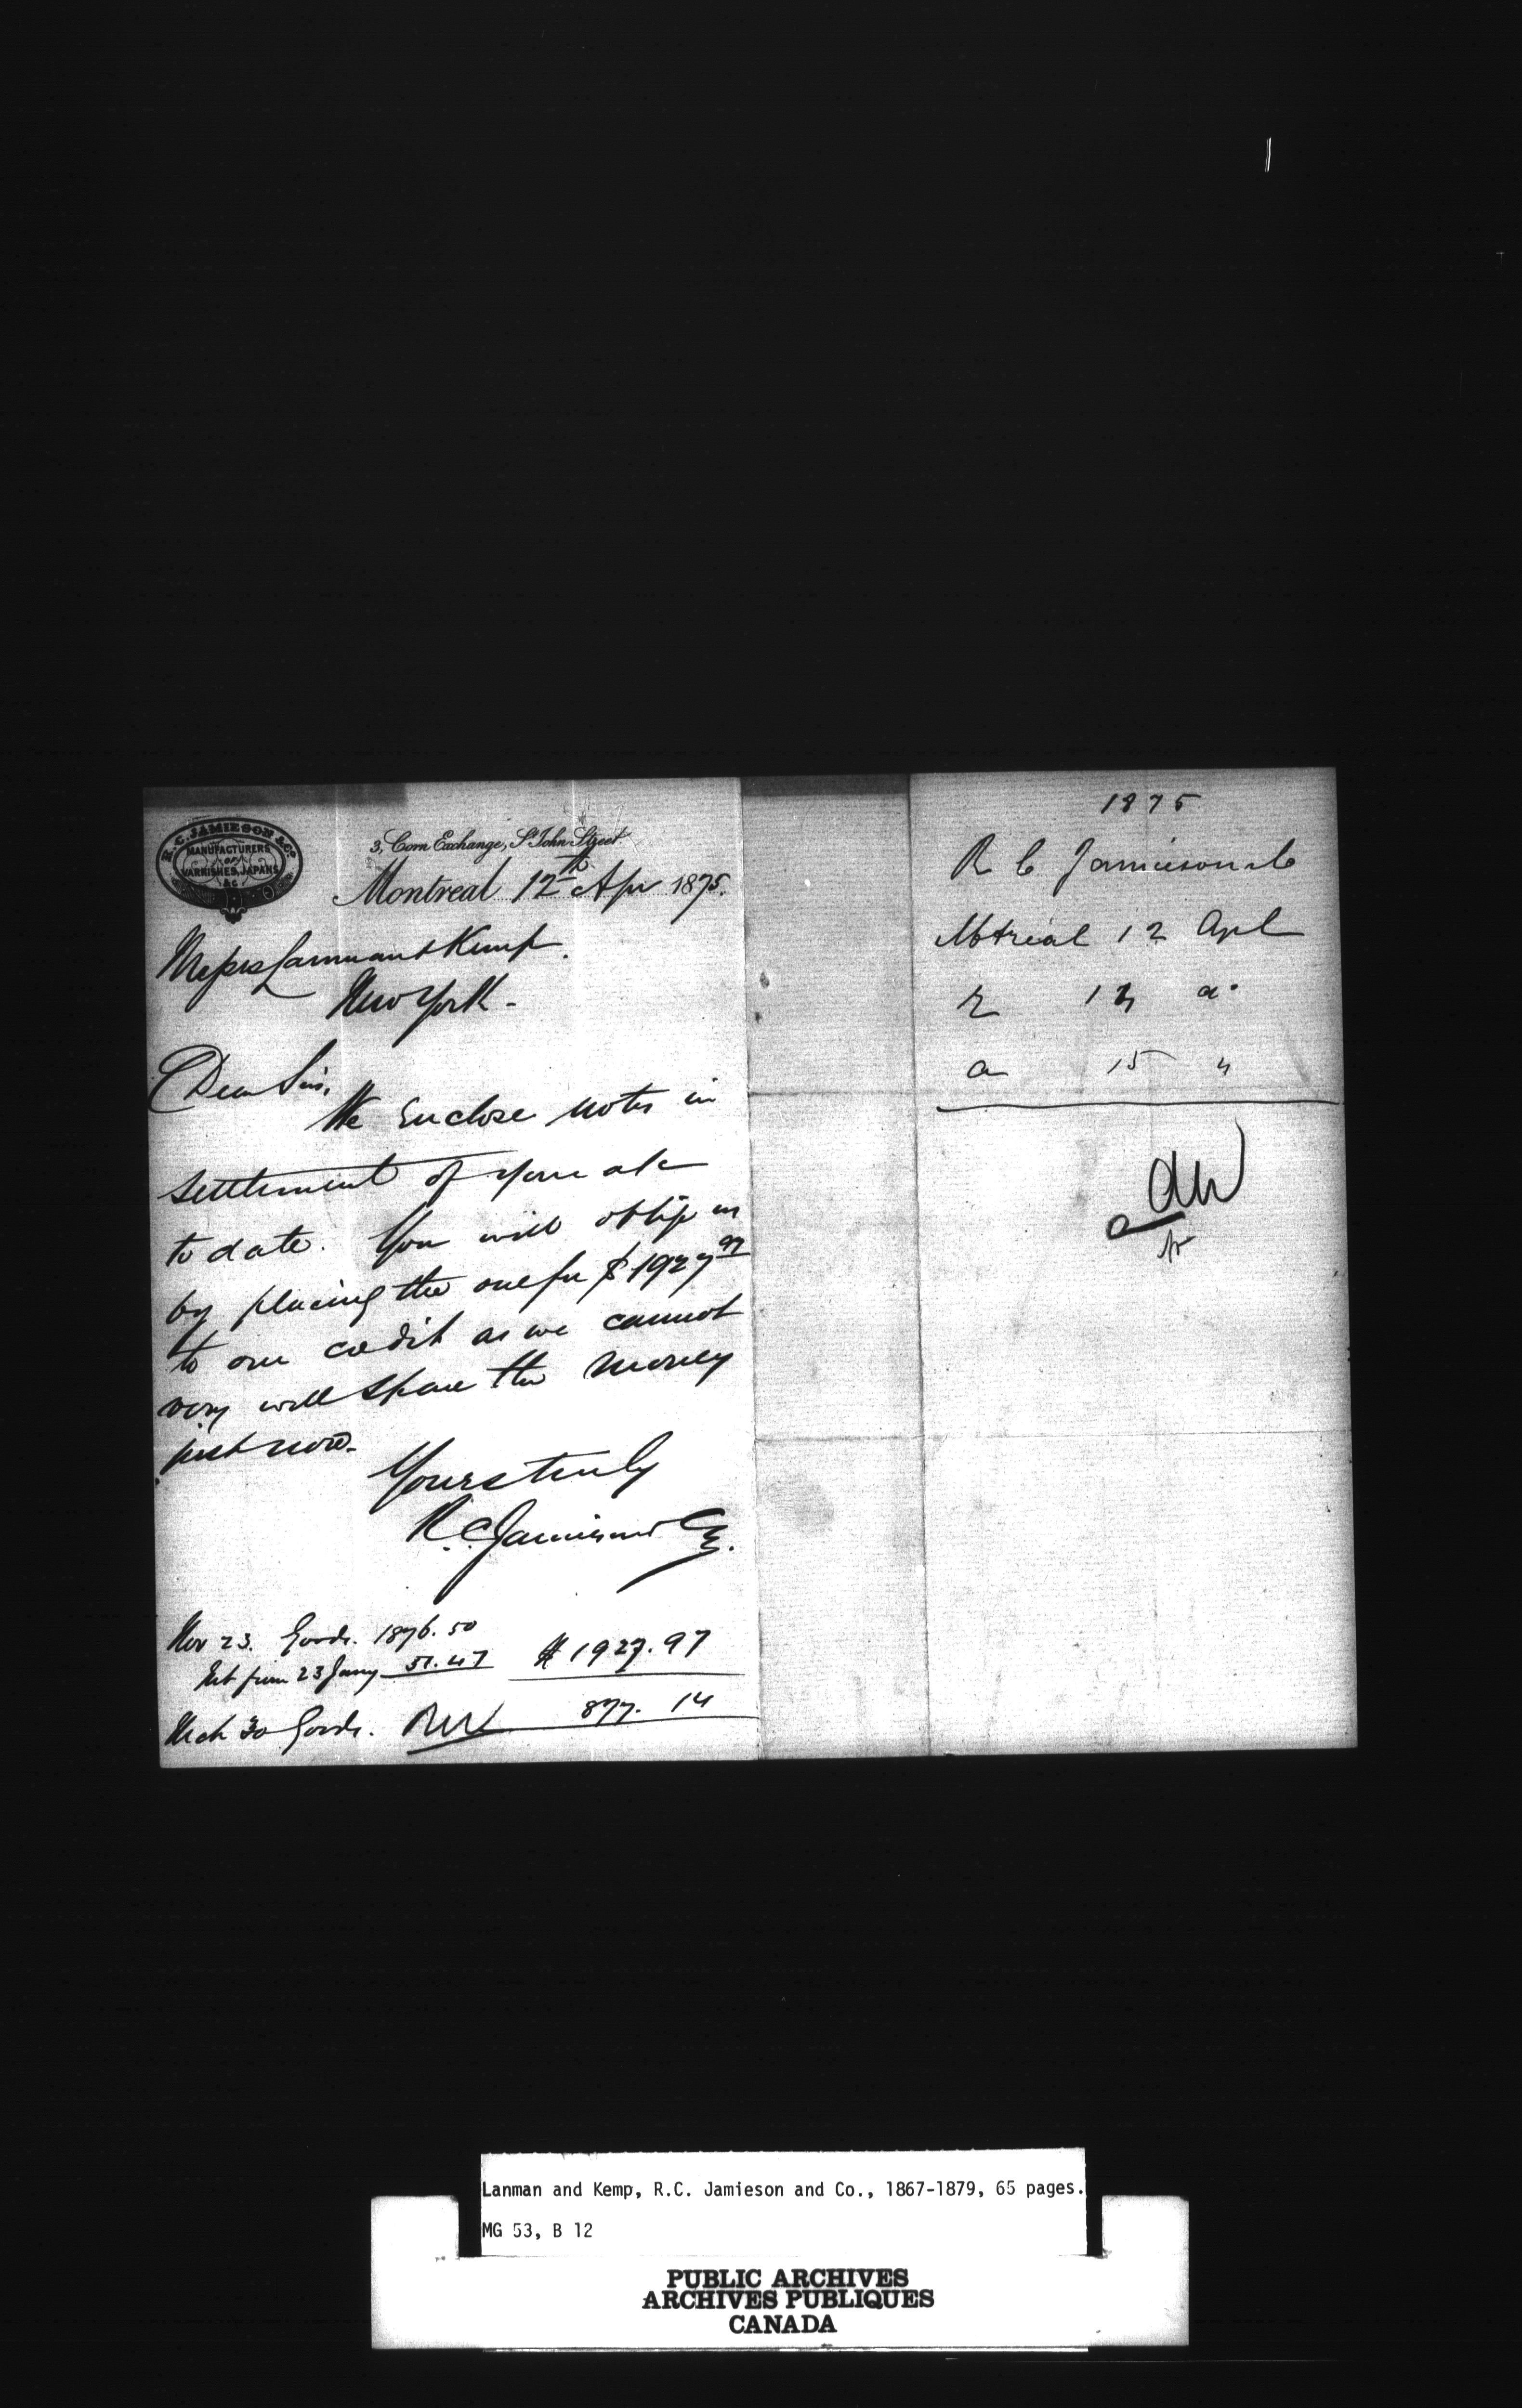 R. C. JAMIESON & Co.
MANUFACTURERS
OF
VARNISHES, JAPANS
&c
3, Corn Exchange, St. John Street.
Montreal 12th Apr 1875.
Messrs Lanman & Kemp.
New York -
Dear Sirs,
We enclose notes in
settlement of your a/c
to date. You will oblige us
by placing the one for $1927 97
to our credit as we cannot
very well spare the money
just now.
Yours truly
R. C. Jamieson & Co.
Nov 23. Goods. 1876.50
Int from 23 Jany 51.47 $ 1927.97
Mch 30 Goods. 877. 14
1875
R C Jamieson & Co
Motreal 12 Apl
R 14 do
a 15 "
Lanman and Kemp, R.C. Jamieson and Co., 1867-1879, 65 pages.
MG 53, B 12
PUBLIC ARCHIVES
ARCHIVES PUBLIQUES
CANADA